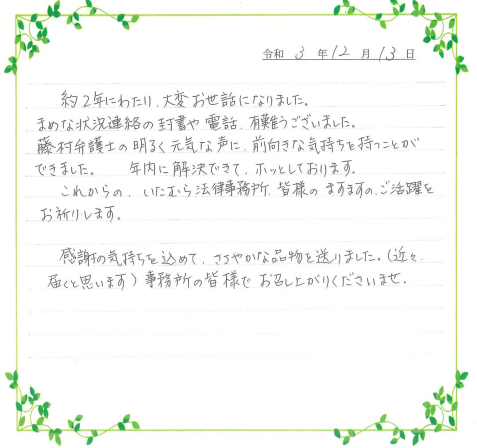 令和 3 年 12 月 13 日
約2年にわたり、大変お世話になりました。
まめな状況連絡の封書や電話、有難うございました。
藤村弁護士の明るく元気な声に、前向きな気持ちを持つことが
できました。 年内に解決できて、ホッとしております。
これからの、いたむら法律事務所、皆様のますますの、ご活躍を
お祈りします。
感謝の気持ちを込めて、ささやかな品物を送りました。(近々、
届くと思います)事務所の皆様でお召し上がりくださいませ。